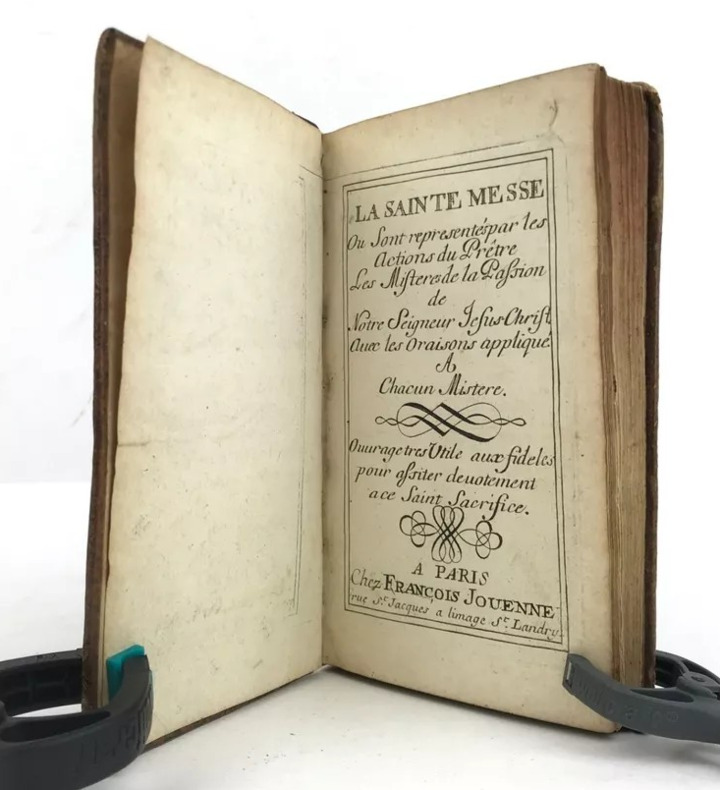 LA SAINTE MESSE
Ou Sont representés par les
Actions du Prêtre
Les Misteres de la Passion
de
Notre Seigneur Jesus Christ
Auec les Oraisons appliqué
A
Chacun Mistere.
Ouurage tres Utile aux fideles
pour assiter deuotement
a ce Saint Sacrifice.
A PARIS
Chez FRANÇOIS JOUENNE
rue St. Jacques a limage St. Landry.